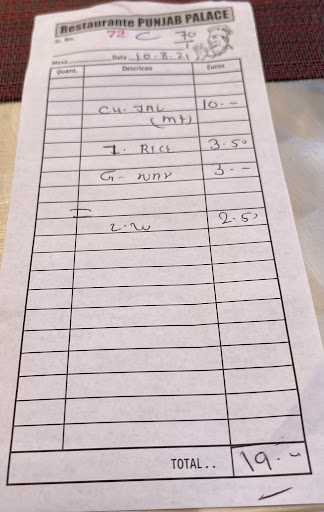 Restaurante PUNJAB PALACE
Sr. No. 72 C 70
1
Mesa Date 10.8.21
Quant. Descricao Euros
CH. JAL 10.--
(mt)
I. RICE 3.50
G- NAN 3.--
2.50
TOTAL.. 19.--